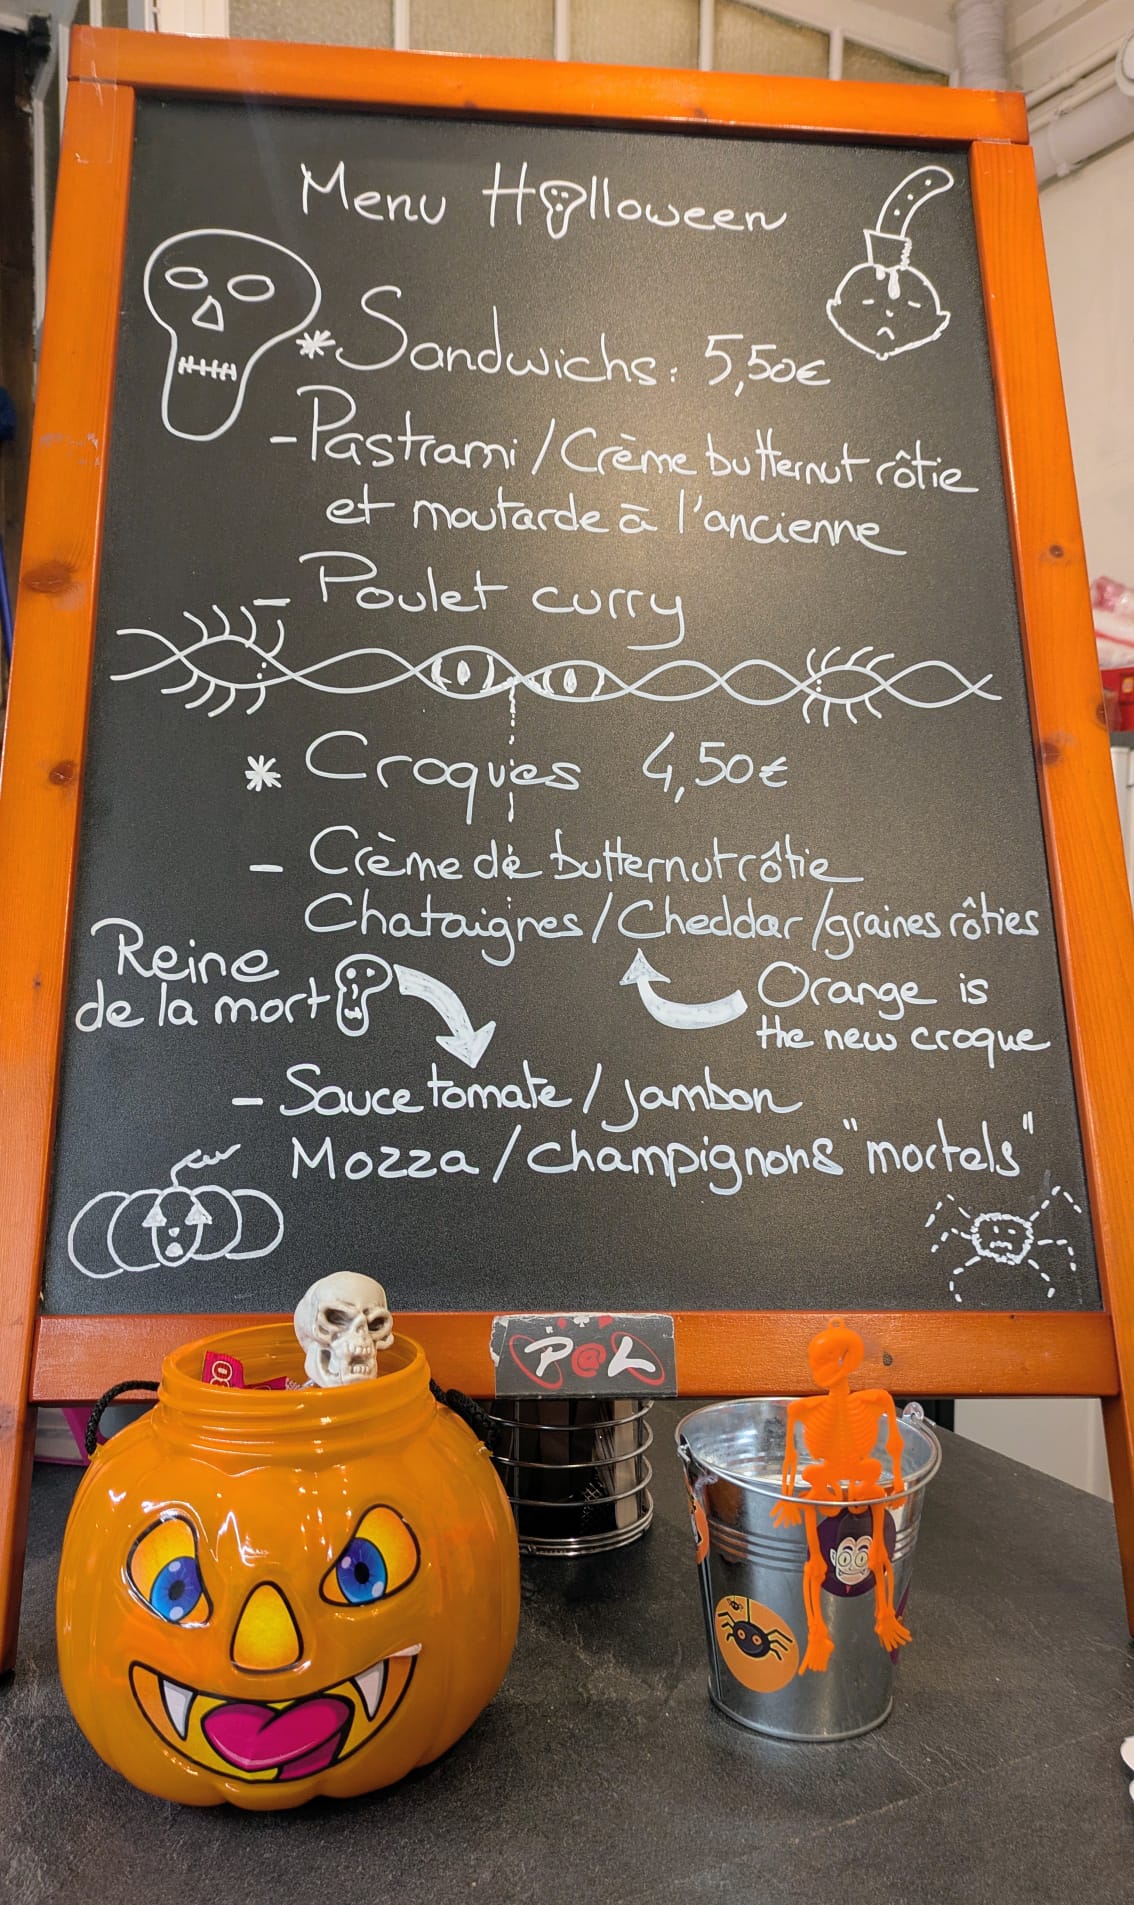 Menu Halloween
* Sandwichs : 5,50€
- Pastrami / Crème butternut rôtie
et moutarde à l'ancienne
- Poulet curry
* Croques 4,50€
- Crème de butternut rôtie
Chataignes / Cheddar / graines rôties
Reine
de la mort
Orange is
the new croque
- Sauce tomate / jambon
Mozza / champignons "mortels"
P@L